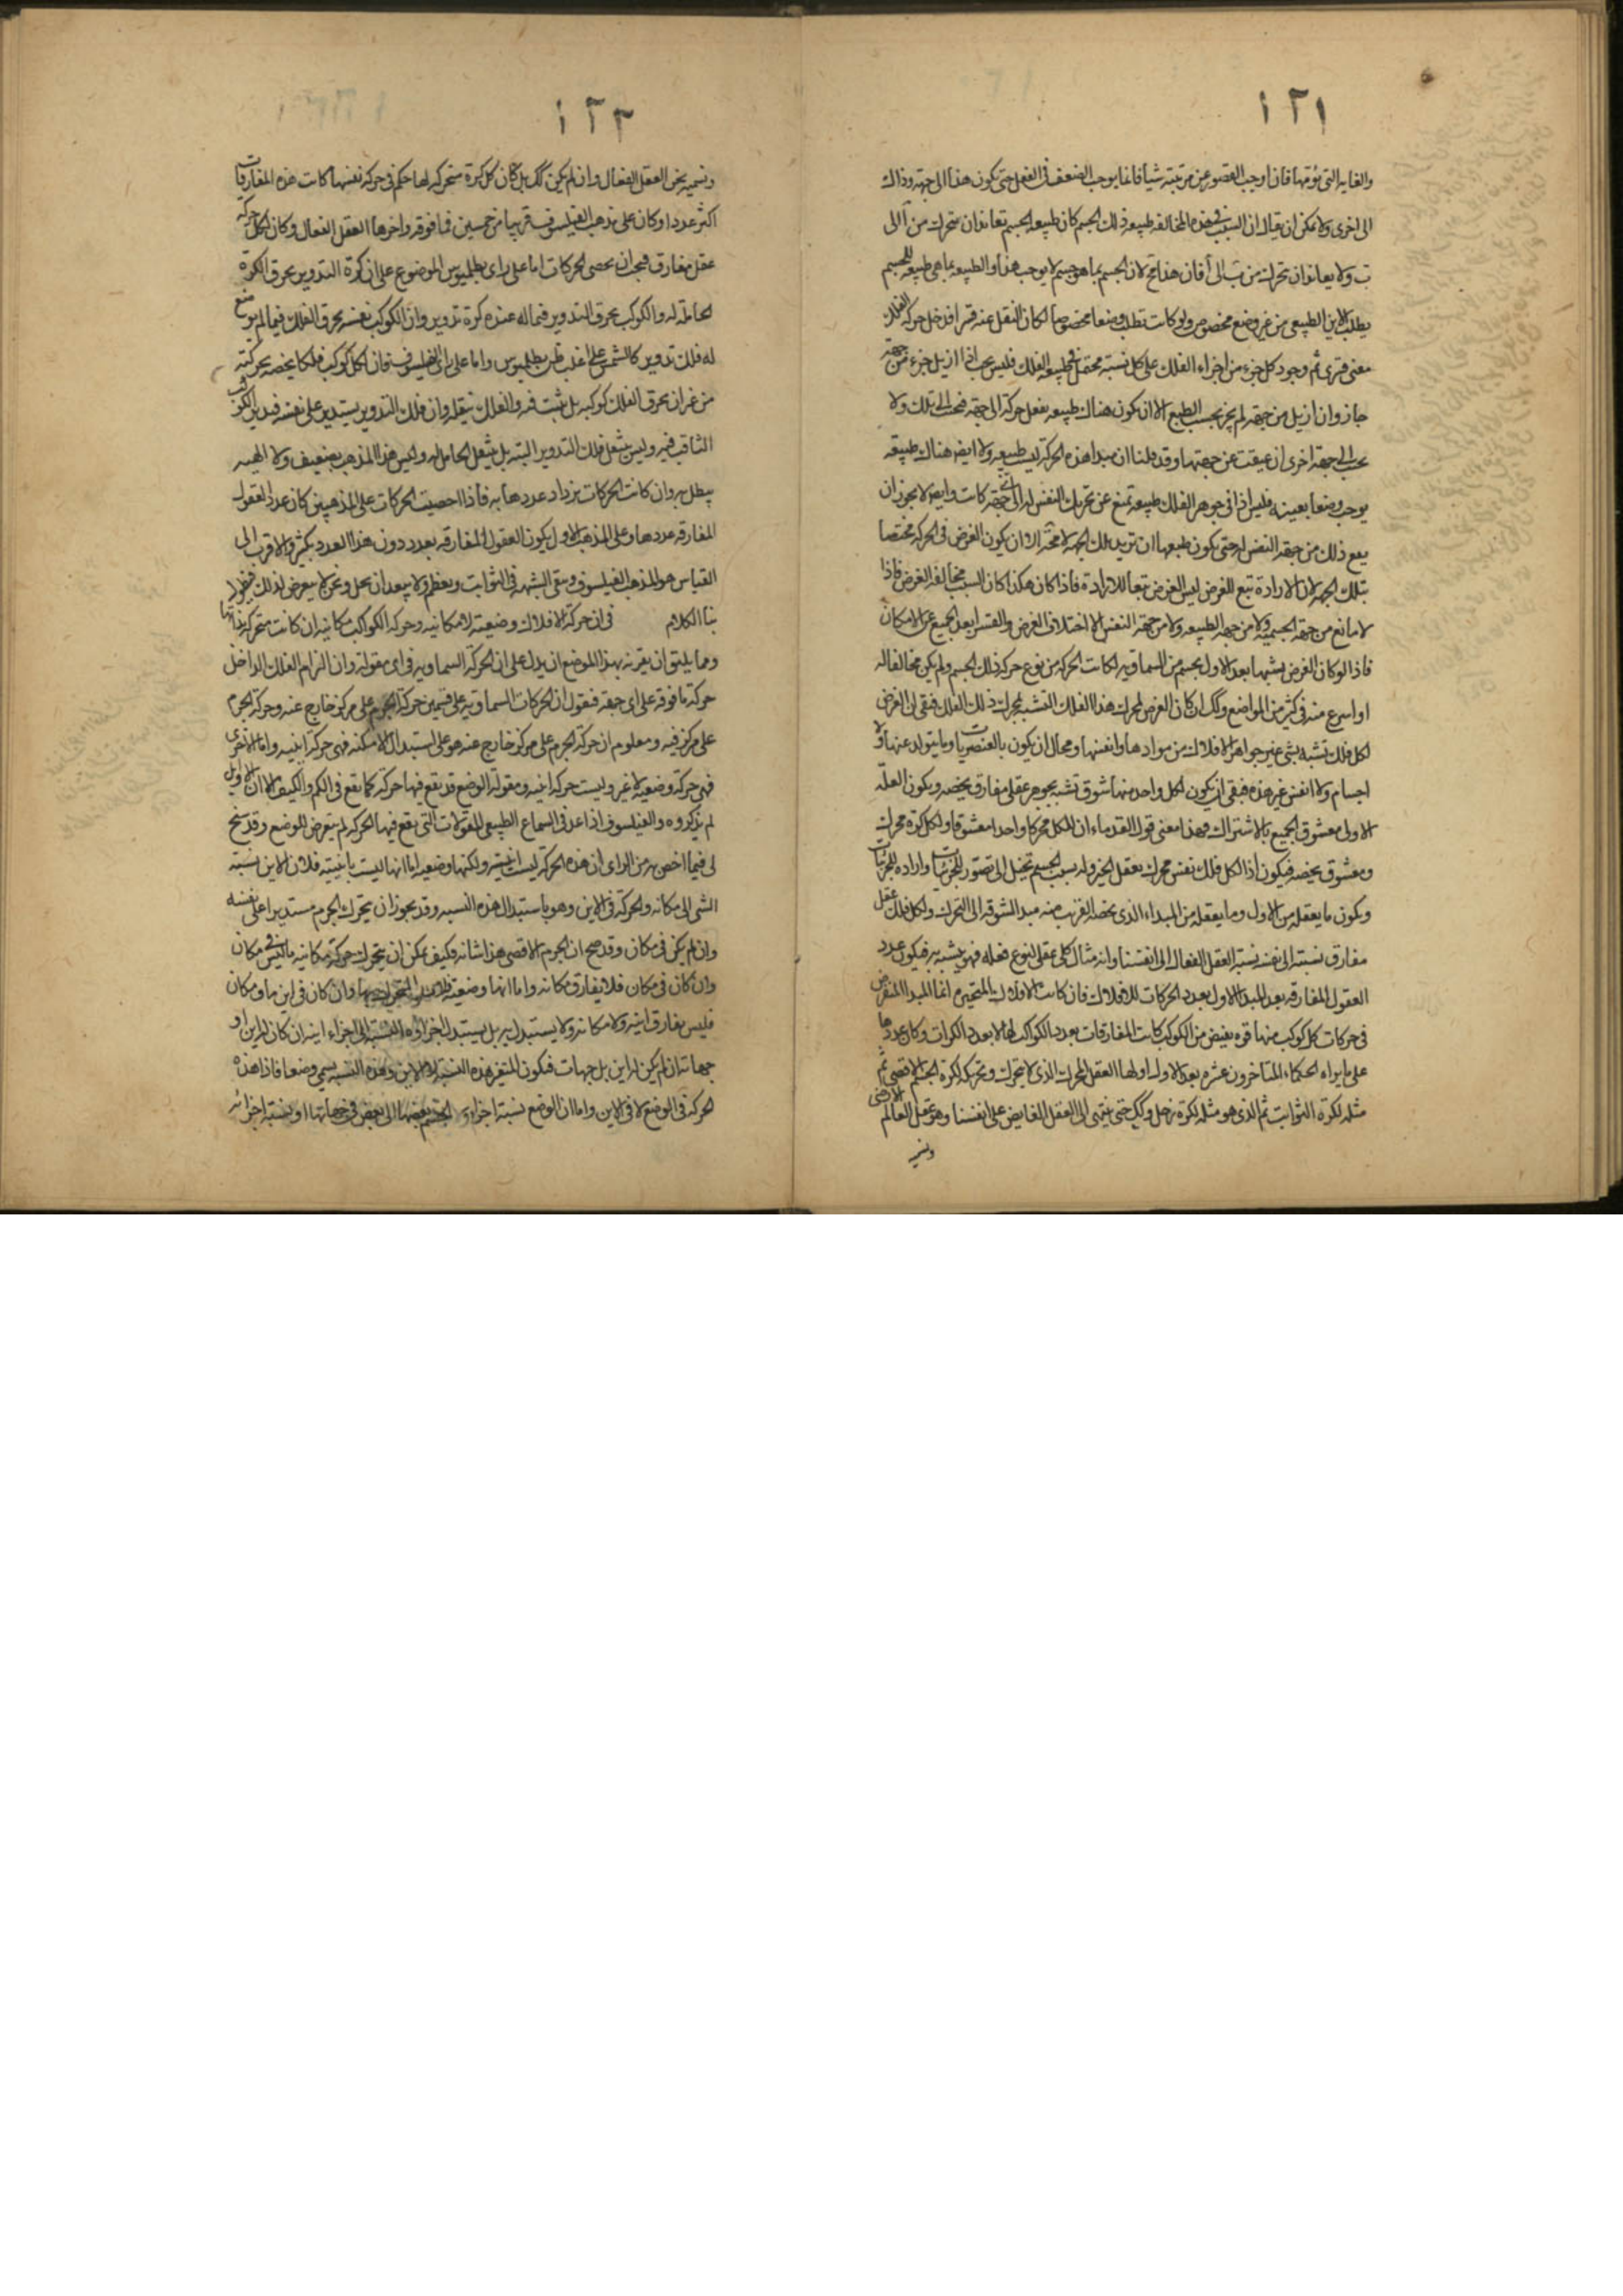 ١٢١
والغاية التي تؤمها فان اوجب القصور عن مرتبته شيأ فانما يوجب الضعف في الفعل حتى يكون هذا الى جهة وذاك
الى اخرى ولا يمكن ان يقال ان السبب في هذه المخالفة طبيعة ذلك الجسم كان طبيعة الجسم تعاند ان يتحرك من آ الى
ب ولا يعاند ان يتحرك من ب الى آ فان هذا مح لان الجسم بما هو جسم لا يوجب هذا والطبيعة بما هي طبيعة للجسم
يطلب الاين الطبيعي من غير وضع مخصوص ولو كانت تطلب وضعا مخصوصا لكان النقل عنه قسرا فدخل حركة الفلك
معنى قسرى ثم وجود كل جزء من اجزاء الفلك على كل نسبة محتمل في طبيعة الفلك فليس يجب اذا ازيل جزء من جهة
جاز وان ازيل من جهة لم يجز بحسب الطبع الا ان يكون هناك طبيعة يفعل حركة الى جهة فيجب الى تلك ولا
يجب الى جهة اخرى ان عيقت عن جهتها وقد قلنا ان مبدا هذه الحركة ليست طبيعية ولا ايضا هناك طبيعة
يوجب وضعا بعينه فليس اذا في جوهر الفلك طبيعة تمنع عن تحريك النفس له الى اي جهة كانت وايضا لا يجوز ان
يقع ذلك من جهة النفس حتى يكون طبعها ان تريد تلك الجهة لا محة الا ان يكون الغرض في الحركة مختصا
بتلك الجهة لان الارادة تبع للغرض ليس الغرض تبعا للارادة فاذا كان هكذا كان السبب مخالفة الغرض فاذا
لا مانع من جهة الجسمية ولا من جهة الطبيعة ولا من جهة النفس الا اختلاف الغرض والقسر ابعد الجميع عن الامكان
فاذا لو كان الغرض تشبها بعد الاول بجسم من السماوية لكانت الحركة من نوع حركة ذلك الجسم ولم يكن مخالفا له
او اسرع منه في كثير من المواضع وكك ان كان الغرض لمحرك هذا الفلك التشبه بمحرك ذلك الفلك فبقى ان الغرض
لكل فلك تشبه بشي غير جواهر الافلاك من موادها وانفسها ومحال ان يكون بالعنصريات وما يتولد عنها ولا
اجسام ولا انفس غير هذه فبقى ان يكون لكل واحد منها شوق تشبه بجوهر عقلي مفارق يخصه ويكون العلة
الاولى معشوق الجميع بالاشتراك فهذا معنى قول القدماء ان للكل محركا واحدا معشوقا ولكل كرة محرك
ومعشوق يخصه فيكون اذا لكل فلك نفس محرك يعقل الخير وله بسبب الجسم تخيل الى تصور للجزئيات وارادة للجزئيات
ويكون ما يعقله من الاول وما يعقله من المبداء الذى يخصه القريب منه مبدا لشوقه الى التحرك ولكل فلك عقل
مفارق نسبته الى نفسه نسبة العقل الفعال الى انفسنا وانه مثال كلي عقلى لنوع فعله فهو يتشبه به فيكون عدد
العقول المفارقة بعد المبدا الاول بعدد الحركات للافلاك فان كانت الافلاك المتحيرة انما المبدا المفروض
في حركات كل كوكب منها قوة يفيض من الكوكب كانت المفارقات بعدد الكواكب لها لا بعدد الكرات وكان عددها
على ما يراه الحكماء المتاخرون عشرة بعد الاول اولها العقل المحرك الذى لا يتحرك وتحريكه لكرة الجرم الاقصى ثم
مثله لكرة الثوابت ثم الذى هو مثله لكرة زحل وكك حتى ينتهى الى العقل الفايض على انفسنا وهو عقل العالم الارضى
ونسميه
١٢٢
ونسميه نحن العقل الفعال وان لم يكن كك بل كان كل كرة متحركة لها حكم في حركة نفسها كانت هذه المفارقات
اكثر عددا وكان على مذهب الفيلسوف قريبا من خمسين فما فوقه واخرها العقل الفعال وكان لكل حركة
عقل مفارق فيجب ان يحصى الحركات اما على راى بطلميوس الموضوع على ان كرة التدوير يحرق الكرة
الحاملة له والكوكب يحرق التدوير فيما له عنده كرة تدوير وان الكوكب نفسه يحرق الفلك فيما لم يوضع
له فلك تدوير كالشمس على اغلب ظن بطلميوس واما على راى الفيلسوف فان لكل كوكب فلكا يخصه بحركته
من غير ان يحرق الفلك كوكبه بل يثبت فيه والفلك ينقله وان فلك التدوير يستدير على نفسه فيدير الكوكب
الثاقب فيه وليس ينتقل فلك التدوير البتة بل ينتقل الحامل له وليس هذا المذهب بضعيف ولا الهيه
يبطل به وان كانت الحركات يزداد عددها به فاذا احصيت الحركات على المذهبين كان عدد العقول
المفارقة عددها وعلى المذهب الاول يكون العقول المفارقة بعدد دون هذا العدد بكثير والاقرب الى
القياس هو المذهب الفيلسوف ويبقى الشبهة في الثوابت ويعظم ولا يبعد ان يحل ونحن لا نتعرض لذلك فيطول
بنا الكلام في ان حركة الافلاك وضعية لا مكانية وحركة الكواكب مكانية ان كانت متحركة بذاتها
ومما يليق ان نقرنه بهذا الموضع ان يدل على ان الحركة السماوية في اى مقولة وان الزام الفلك الداخل
حركة ما فوقه على اى جهة فنقول ان الحركات السماوية على قسمين حركة الجرم على مركز خارج عنه وحركة الجرم
على مركز فيه ومعلوم ان حركة الجرم على مركز خارج عنه هو على استبدال الامكنة فهى حركة اينية واما الاخرى
فهى حركة وضعية لا غير وليست حركة اينية ومقولة الوضع قد يقع فيها حركة كما تقع في الكم والكيف الا ان الاوايل
لم يذكروه والفيلسوف اذا عد في السماع الطبيعى المقولات التي تقع فيها الحركة لم يتعرض للوضع وقد سنح
لى فيما اخص به من الراى ان هذه الحركة ليست اينية ولكنها وضعية اما انها ليست باينية فلان الاين نسبة
الشى الى مكانه والحركة في الاين وهو باستبدال هذه النسبة وقد يجوز ان يتحرك الجرم مستديرا على نفسه
وان لم يكن في مكان وقد صح ان الجرم الاقصى هذا شانه فكيف يمكن ان يتحرك حركة مكانية ما ليس في مكان
وان كان في مكان فلا يفارق مكانه واما انها وضعية وان كان في اين ما ومكان
فليس يفارق اينه ولا مكانه ولا يستبدل به بل يستبدل اجزاؤه النسبة الى اجزاء اينه ان كان له اين او
جهاته ان لم يكن له اين بل جهات فيكون المتغير هذه النسبة لا الاين وهذه النسبة يسمى وضعا فاذا هذه
الحركة في الوضع لا في الاين واما ان الوضع نسبة اجزاء الجسم بعضها الى بعض في جهاتها او نسبة اجزائه